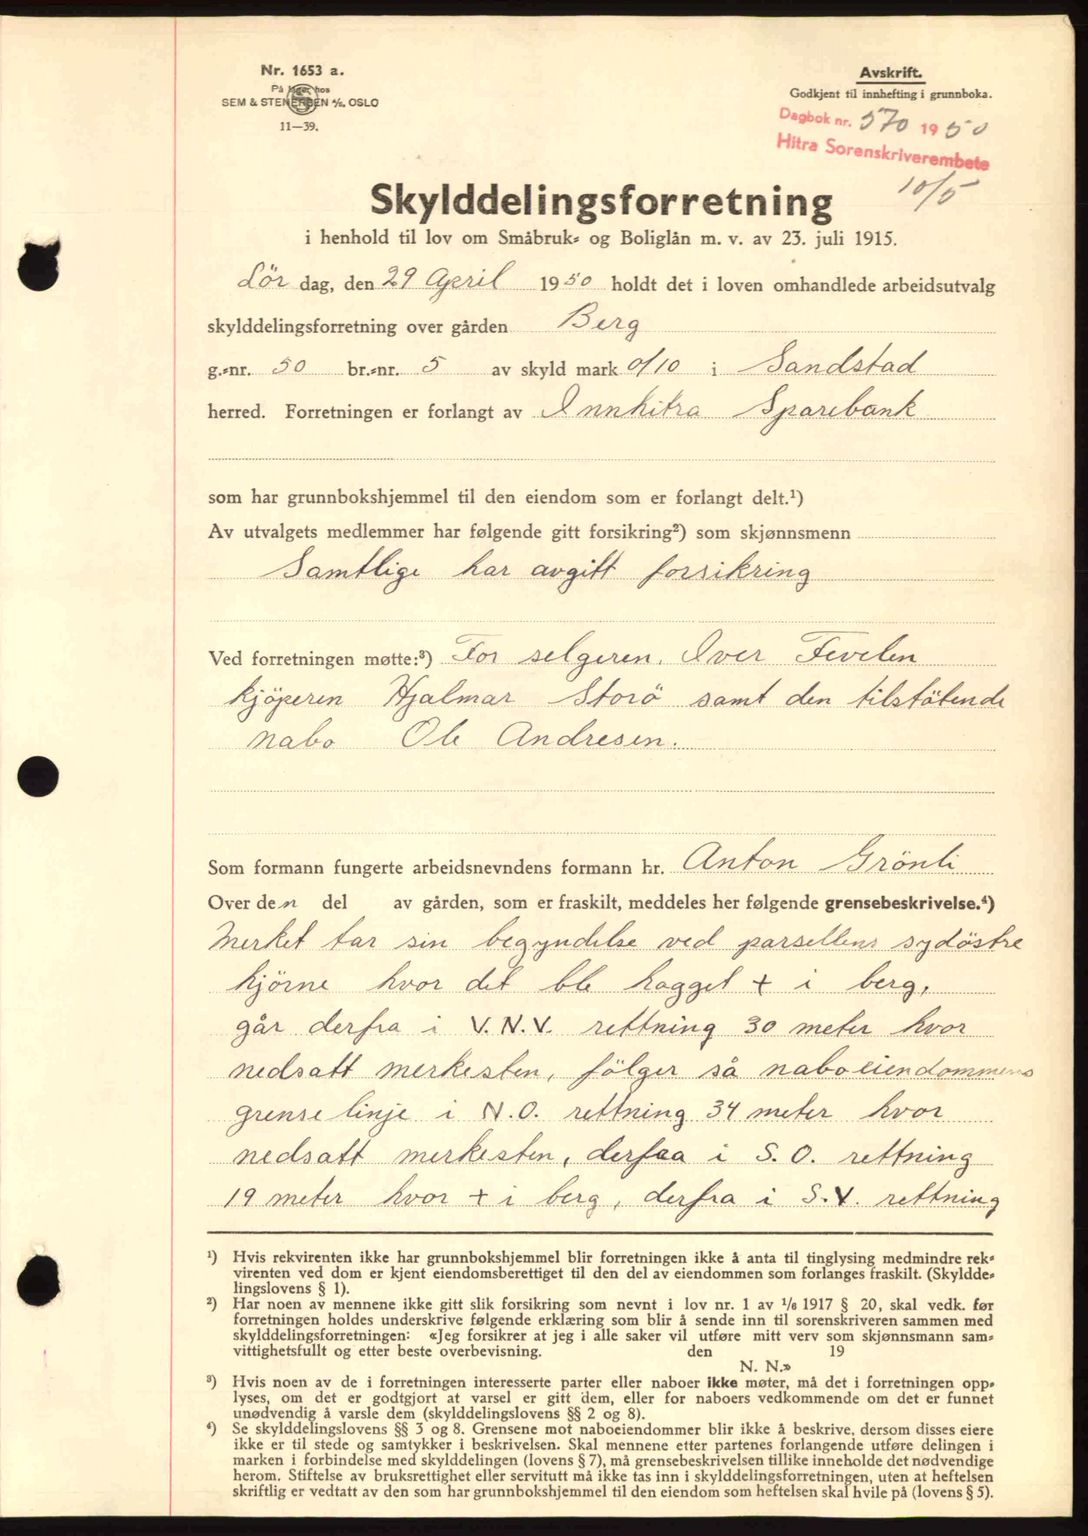 Nr. 1653 a.
På lager hos
SEM & STENERSEN A/S. OSLO
11—39.
Avskrift.
Godkjent til innhefting i grunnboka.
Dagbok nr. 570 1950
Hitra Sorenskriverembete
10/5
Skylddelingsforretning
i henhold til lov om Småbruk- og Boliglån m. v. av 23. juli 1915.
Lör dag, den 29 April 1950 holdt det i loven omhandlede arbeidsutvalg
skylddelingsforretning over gården Berg
g.-nr. 50 br.-nr. 5 av skyld mark 0/10 i Sandstad
herred. Forretningen er forlangt av Innhitra Sparebank
som har grunnbokshjemmel til den eiendom som er forlangt delt.¹)
Av utvalgets medlemmer har følgende gitt forsikring²) som skjønnsmenn
Samtlige har avgitt forsikring
Ved forretningen møtte:³) For selgeren. Iver Fevelen
kjöperen Hjalmar Storö samt den tilstötende
nabo Ole Andresen.
Som formann fungerte arbeidsnevndens formann hr. Anton Grönli
Over den del av gården, som er fraskilt, meddeles her følgende grensebeskrivelse.⁴)
Merket tar sin begyndelse ved parsellens sydöstre
hjörne hvor det ble hogget + i berg,
går derfra i V.N.V. rettning 30 meter hvor
nedsatt merkesten, fölger så naboeiendommens
grenselinje i N.O. rettning 34 meter hvor
nedsatt merkesten, derfaa i S.O. rettning
19 meter hvor + i berg, derfra i S.V. rettning
¹) Hvis rekvirenten ikke har grunnbokshjemmel blir forretningen ikke å anta til tinglysing medmindre rek-
virenten ved dom er kjent eiendomsberettiget til den del av eiendommen som forlanges fraskilt. (Skyldde-
lingslovens § 1).
²) Har noen av mennene ikke gitt slik forsikring som nevnt i lov nr. 1 av 1/6 1917 § 20, skal vedk. før
forretningen holdes underskrive følgende erklæring som blir å sende inn til sorenskriveren sammen med
skylddelingsforretningen: «Jeg forsikrer at jeg i alle saker vil utføre mitt verv som skjønnsmann sam-
vittighetsfullt og etter beste overbevisning. den 19
N. N.»
³) Hvis noen av de i forretningen interesserte parter eller naboer ikke møter, må det i forretningen opp-
lyses, om det er godtgjort at varsel er gitt dem, eller for naboers vedkommende om det er funnet
unødvendig å varsle dem (skylddelingslovens §§ 2 og 8).
⁴) Se skylddelingslovens §§ 3 og 8. Grensene mot naboeiendommer blir ikke å beskrive, dersom disses eiere
ikke er til stede og samtykker i beskrivelsen. Skal mennene etter partenes forlangende utføre delingen i
marken i forbindelse med skylddelingen (lovens § 7), må grensebeskrivelsen tillike inneholde det nødvendige
herom. Stiftelse av bruksrettighet eller servitutt må ikke tas inn i skylddelingsforretningen, uten at heftelsen
skriftlig er vedtatt av den som har grunnbokshjemmel til den eiendom som heftelsen skal hvile på (lovens § 5).